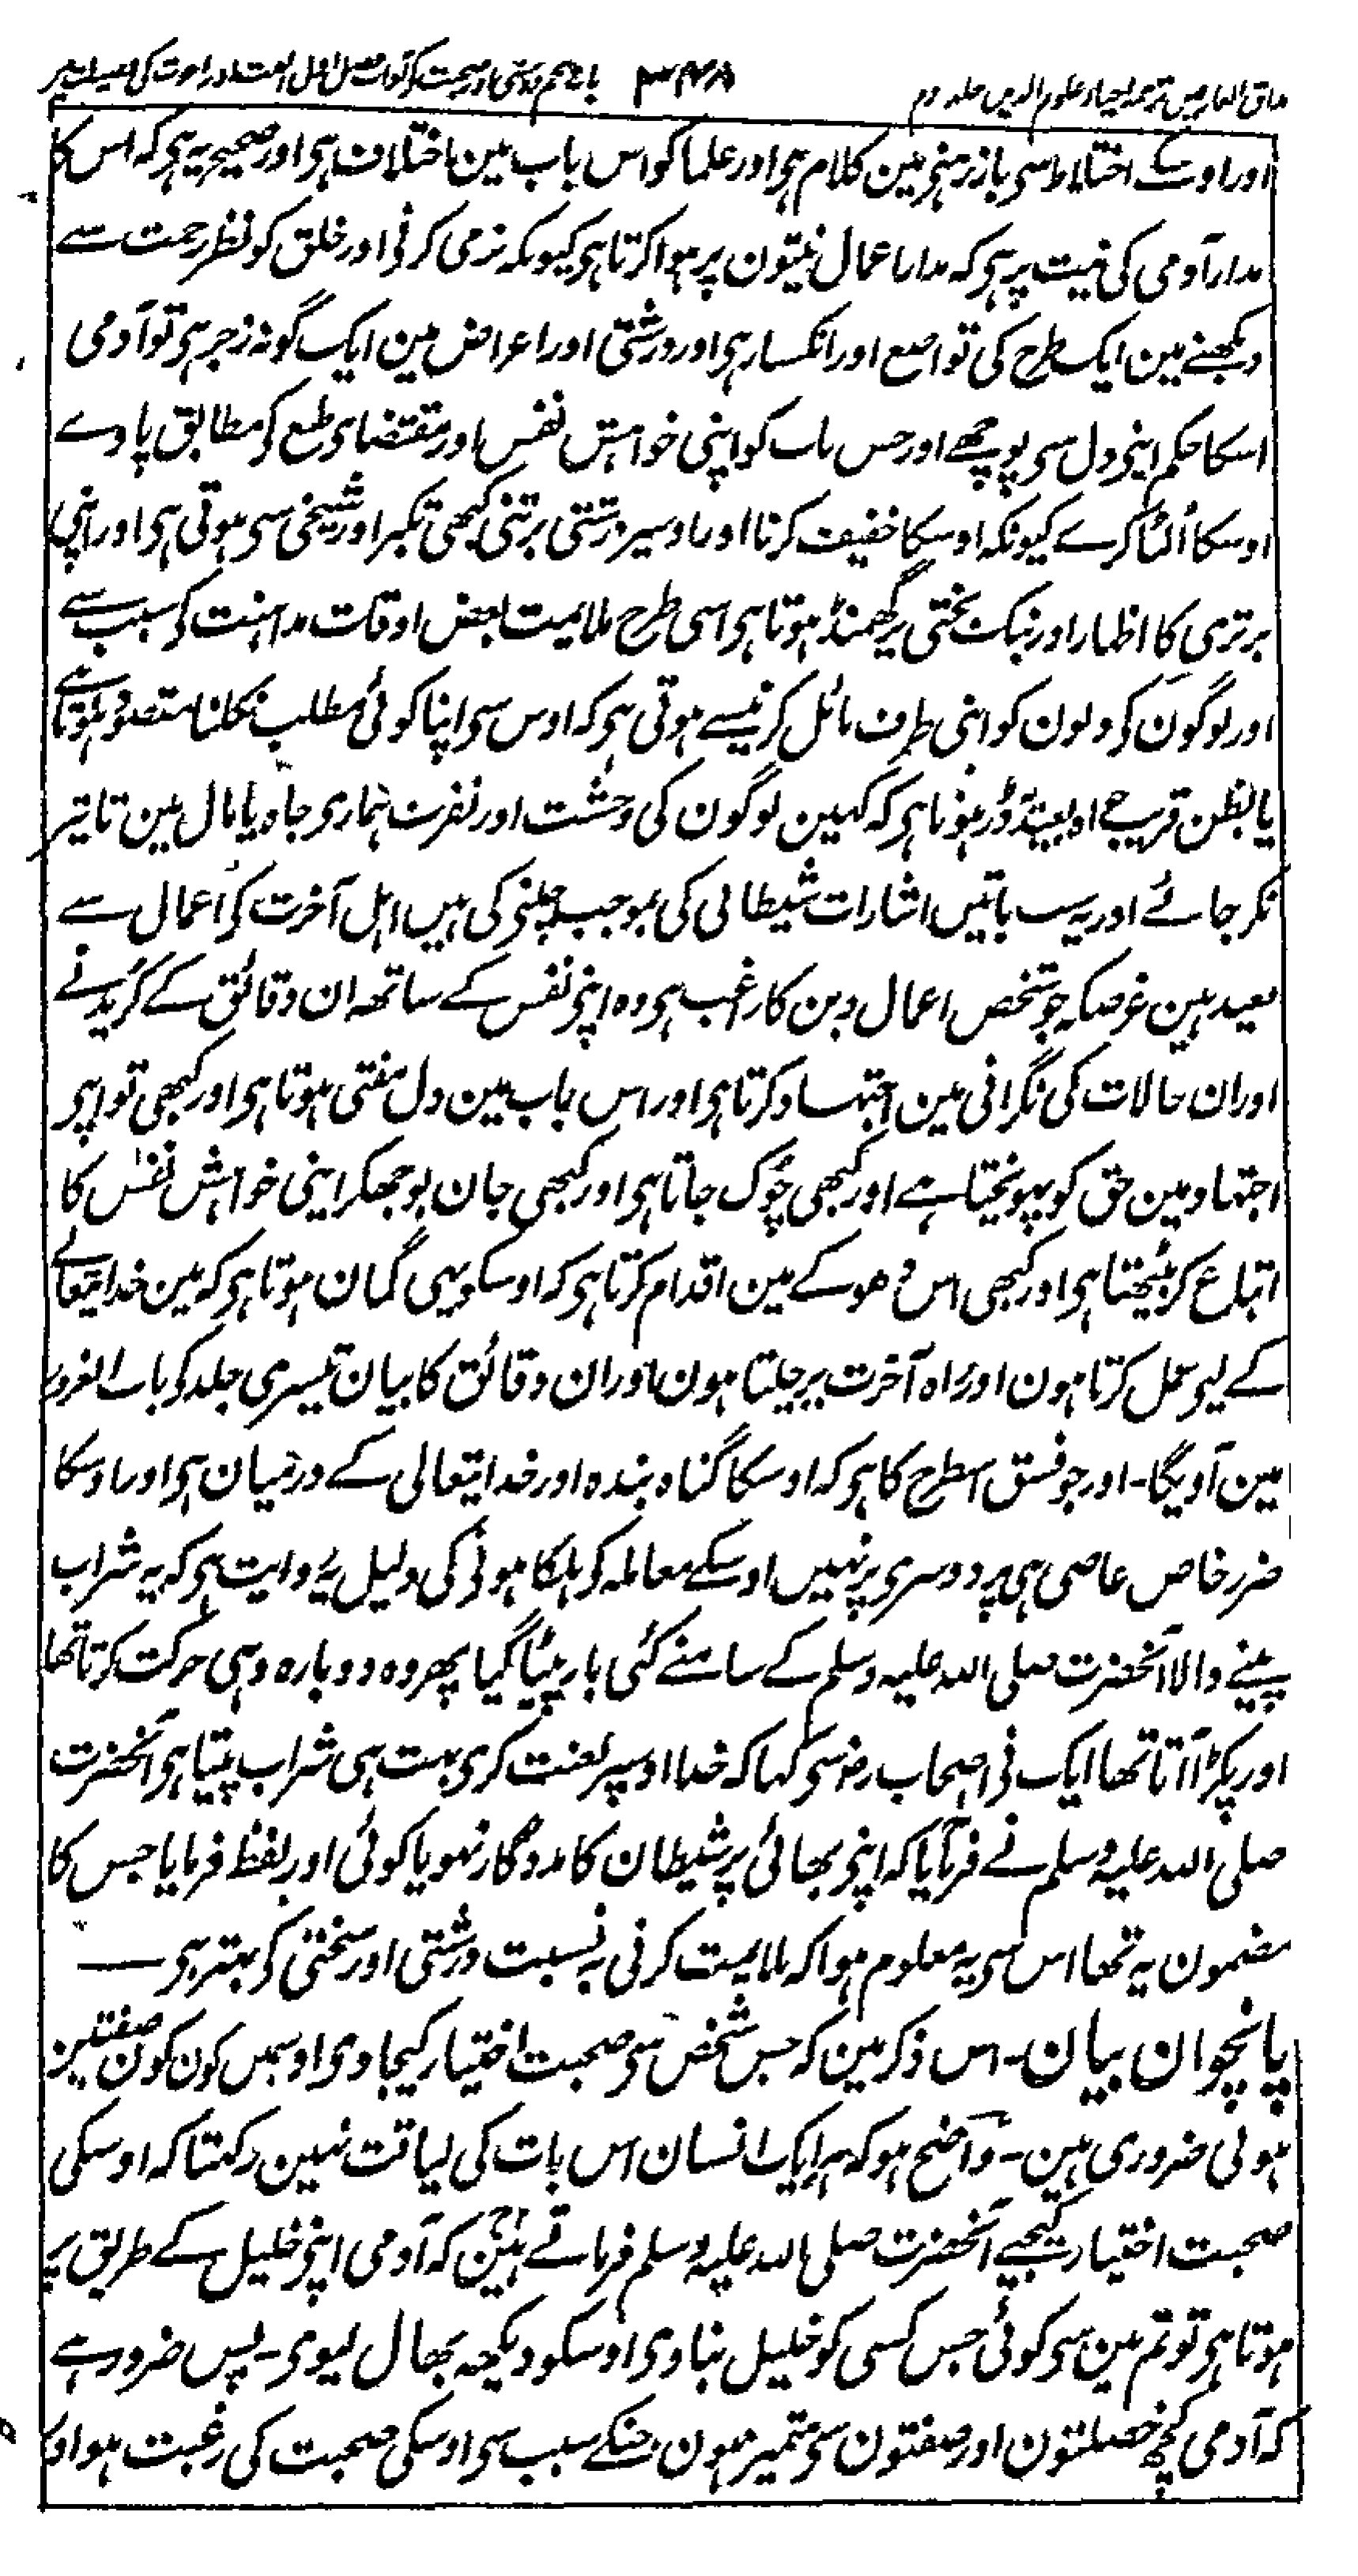 مذاق العارفین ترجمہ احیاء علوم الدین جلد دوم ۳۴۸ باب پنجم دوستی اور صحبت کے آداب فصل اول الفت اور اخوت کی فضیلت میں
اور اوسکے اختلاط سی باز رہنی مین کلام ہی اور علما کو اس باب مین اختلاف ہی اور صحیح یہ ہی کہ اس کا
مدار آدمی کی نیت پر ہی کہ مدار اعمال نیتون پر ہوا کرتا ہی کیونکہ نرمی کرنی اور خلق کو نظر رحمت سے
دیکھنے مین ایک طرح کی تواضع اور انکسار ہی اور درشتی اور اعراض مین ایک گونہ زجر ہی تو آدمی
اسکا حکم اپنی دل سی پوچھے اور جس بات کو اپنی خواہش نفس اور مقتضای طبع کی مطابق پاوے
اوسکا اُلٹا کرے کیونکہ اوسکا خفیف کرنا اور اوسپر درشتی برتنی کبھی تکبر اور شیخی سی ہوتی ہی اور اپنی
برتری کا اظہار اور نیک بختی پر گھمنڈ ہوتا ہی اسی طرح ملایمت بعض اوقات مداہنت کی سبب سے
اور لوگون کی دلون کو اپنی طرف مائل کرنیسے ہوتی ہی کہ اوس سی اپنا کوئی مطلب نکلنا متصور ہوتا ہے
یا بظن قریب یا بعید ڈر ہوتا ہی کہ کہین لوگون کی وحشت اور نفرت ہماری جاہ یا مال مین تاثیر
نکر جائے اور یہ سب باتیں اشارات شیطانی کی بموجب چلنی کی ہیں اہل آخرت کی اعمال سے
بعید ہین غرضکہ جو شخص اعمال دین کا راغب ہی وہ اپنی نفس کے ساتھہ ان دقائق کے کُریدنے
اور ان حالات کی نگرانی مین اجتہاد کرتا ہی اور اس باب مین دل مفتی ہوتا ہی اور کبھی تو اپنی
اجتہاد مین حق کو پہونچتا ہے اور کبھی چُوک جاتا ہی اور کبھی جان بوجھکر اپنی خواہش نفس کا
اتباع کر بیٹھتا ہی اور کبھی اس دھوکے مین اقدام کرتا ہی کہ اوسکو یہی گمان ہوتا ہی کہ مین خدایتعالے
کے لیی عمل کرتا ہون اور راہ آخرت پر چلتا ہون اور ان دقائق کا بیان تیسری جلد کی باب الغرور
مین آویگا۔ اور جو فسق اسطرح کا ہی کہ اوسکا گناہ بندہ اور خدایتعالی کے درمیان ہی اور اوسکا
ضرر خاص عاصی ہی پر دوسری پر نہیں اوسکے معاملہ کی ہلکا ہونی کی دلیل یہ روایت ہی کہ یہ شراب
پینے والا آنحضرت صلی اللہ علیہ وسلم کے سامنے کئی بار پیٹا گیا پھر وہ دوبارہ وہی حرکت کرتا تھا
اور پکڑا آتا تھا ایک نی اصحاب رض سی کہا کہ خدا اوسپر لعنت کری بہت ہی شراب پیتا ہی آنحضرت
صلی اللہ علیہ وسلم نے فرمایا کہ اپنی بھائی پر شیطان کا مددگار نہو یا کوئی اور لفظ فرمایا جس کا
مضمون یہ تھا اس سی یہ معلوم ہوا کہ ملایمت کرنی بہ نسبت درشتی اور سختی کی بہتر ہی ——
پانچوان بیان۔ اس ذکر مین کہ جس شخص سی صحبت اختیار کیجاوی اوسمیں کون کون صفتین
ہونی ضروری ہین۔ واضح ہو کہ ہر ایک انسان اس بات کی لیاقت نہین رکہتا کہ اوسکی
صحبت اختیار کیجیے آنحضرت صلی اللہ علیہ وسلم فرماتے ہین کہ آدمی اپنی خلیل کے طریق پر
ہوتا ہی تو تم مین سی کوئی جس کسی کو خلیل بناوی اوسکو دیکھہ بھال لیوی۔ پس ضرور ہے
کہ آدمی کچھ خصلتون اور صفتون سی متمیز ہون جنکے سبب سی اوسکی صحبت کی رغبت ہو اور